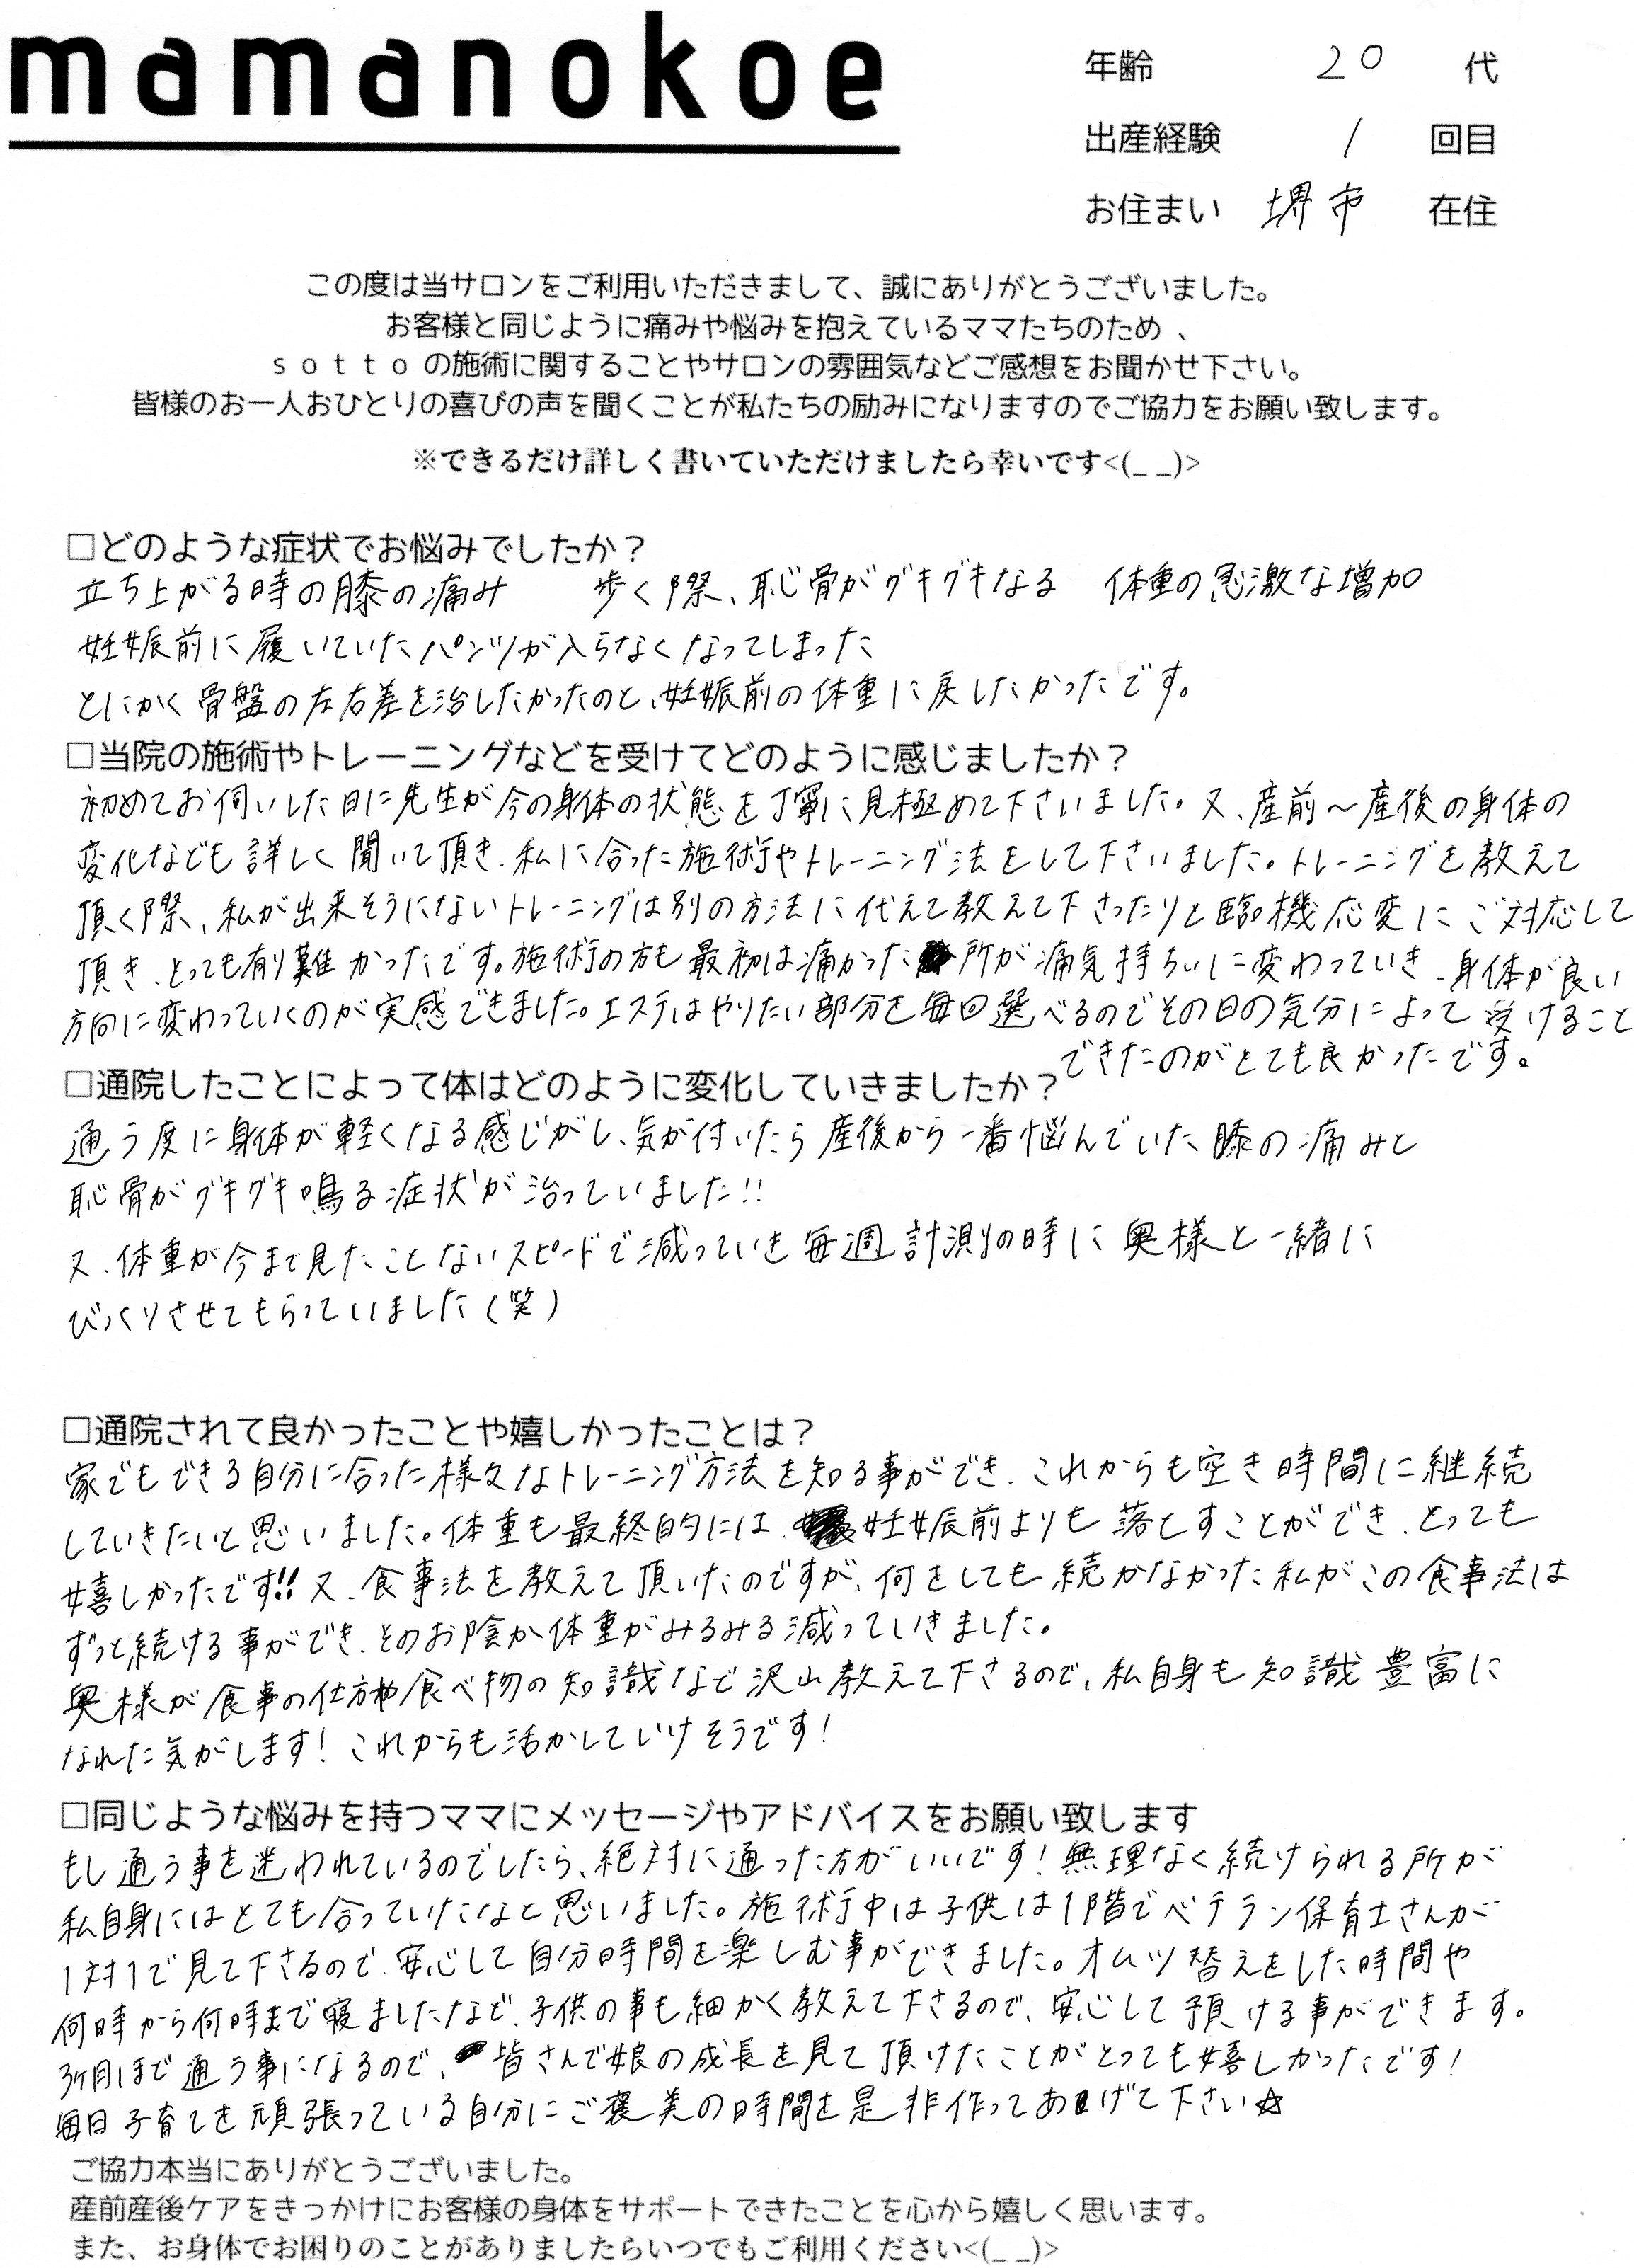 mamanokoe
年齢 20 代
出産経験 1 回目
お住まい 堺市 在住
この度は当サロンをご利用いただきまして、誠にありがとうございました。
お客様と同じように痛みや悩みを抱えているママたちのため、
sottoの施術に関することやサロンの雰囲気などご感想をお聞かせ下さい。
皆様のお一人おひとりの喜びの声を聞くことが私たちの励みになりますのでご協力をお願い致します。
※できるだけ詳しく書いていただけましたら幸いです<(_ _)>
□どのような症状でお悩みでしたか？
立ち上がる時の膝の痛み 歩く際、恥骨がグキグキなる 体重の急激な増加
妊娠前に履いていたパンツが入らなくなってしまった
とにかく骨盤の左右差を治したかったのと、妊娠前の体重に戻したかったです。
□当院の施術やトレーニングなどを受けてどのように感じましたか？
初めてお伺いした日に先生が今の身体の状態を丁寧に見極めて下さいました。又、産前～産後の身体の
変化なども詳しく聞いて頂き、私に合った施術やトレーニング法をして下さいました。トレーニングを教えて
頂く際、私が出来そうにないトレーニングは別の方法に代えて教えて下さったりと臨機応変にご対応して
頂き、とっても有難かったです。施術の方も最初は痛かった所が痛気持ちいに変わっていき、身体が良い
方向に変わっていくのが実感できました。エステはやりたい部分を毎回選べるのでその日の気分によって受けること
できたのがとても良かったです。
□通院したことによって体はどのように変化していきましたか？
通う度に身体が軽くなる感じがし、気が付いたら産後から一番悩んでいた膝の痛みと
恥骨がグキグキ鳴る症状が治っていました!!
又、体重が今まで見たことないスピードで減っていき毎週計測の時に奥様と一緒に
びっくりさせてもらっていました(笑)
□通院されて良かったことや嬉しかったことは？
家でもできる自分に合った様々なトレーニング方法を知る事ができ、これからも空き時間に継続
していきたいと思いました。体重も最終的には、妊娠前よりも落とすことができ、とっても
嬉しかったです!!又、食事法を教えて頂いたのですが、何をしても続かなかった私がこの食事法は
ずっと続ける事ができ、そのお陰か体重がみるみる減っていきました。
奥様が食事の仕方や食べ物の知識など沢山教えて下さるので、私自身も知識豊富に
なれた気がします！これからも活かしていけそうです！
□同じような悩みを持つママにメッセージやアドバイスをお願い致します
もし通う事を迷われているのでしたら、絶対に通った方がいいです！無理なく続けられる所が
私自身にはとても合っていたなと思いました。施術中は子供は1階でベテラン保育士さんが
1対1で見て下さるので、安心して自分時間を楽しむ事ができました。オムツ替えをした時間や
何時から何時まで寝ましたなど、子供の事も細かく教えて下さるので、安心して預ける事ができます。
3ヶ月ほど通う事になるので、皆さんで娘の成長を見て頂けたことがとっても嬉しかったです！
毎日子育てを頑張っている自分にご褒美の時間を是非作ってあげて下さい☆
ご協力本当にありがとうございました。
産前産後ケアをきっかけにお客様の身体をサポートできたことを心から嬉しく思います。
また、お身体でお困りのことがありましたらいつでもご利用ください<(_ _)>